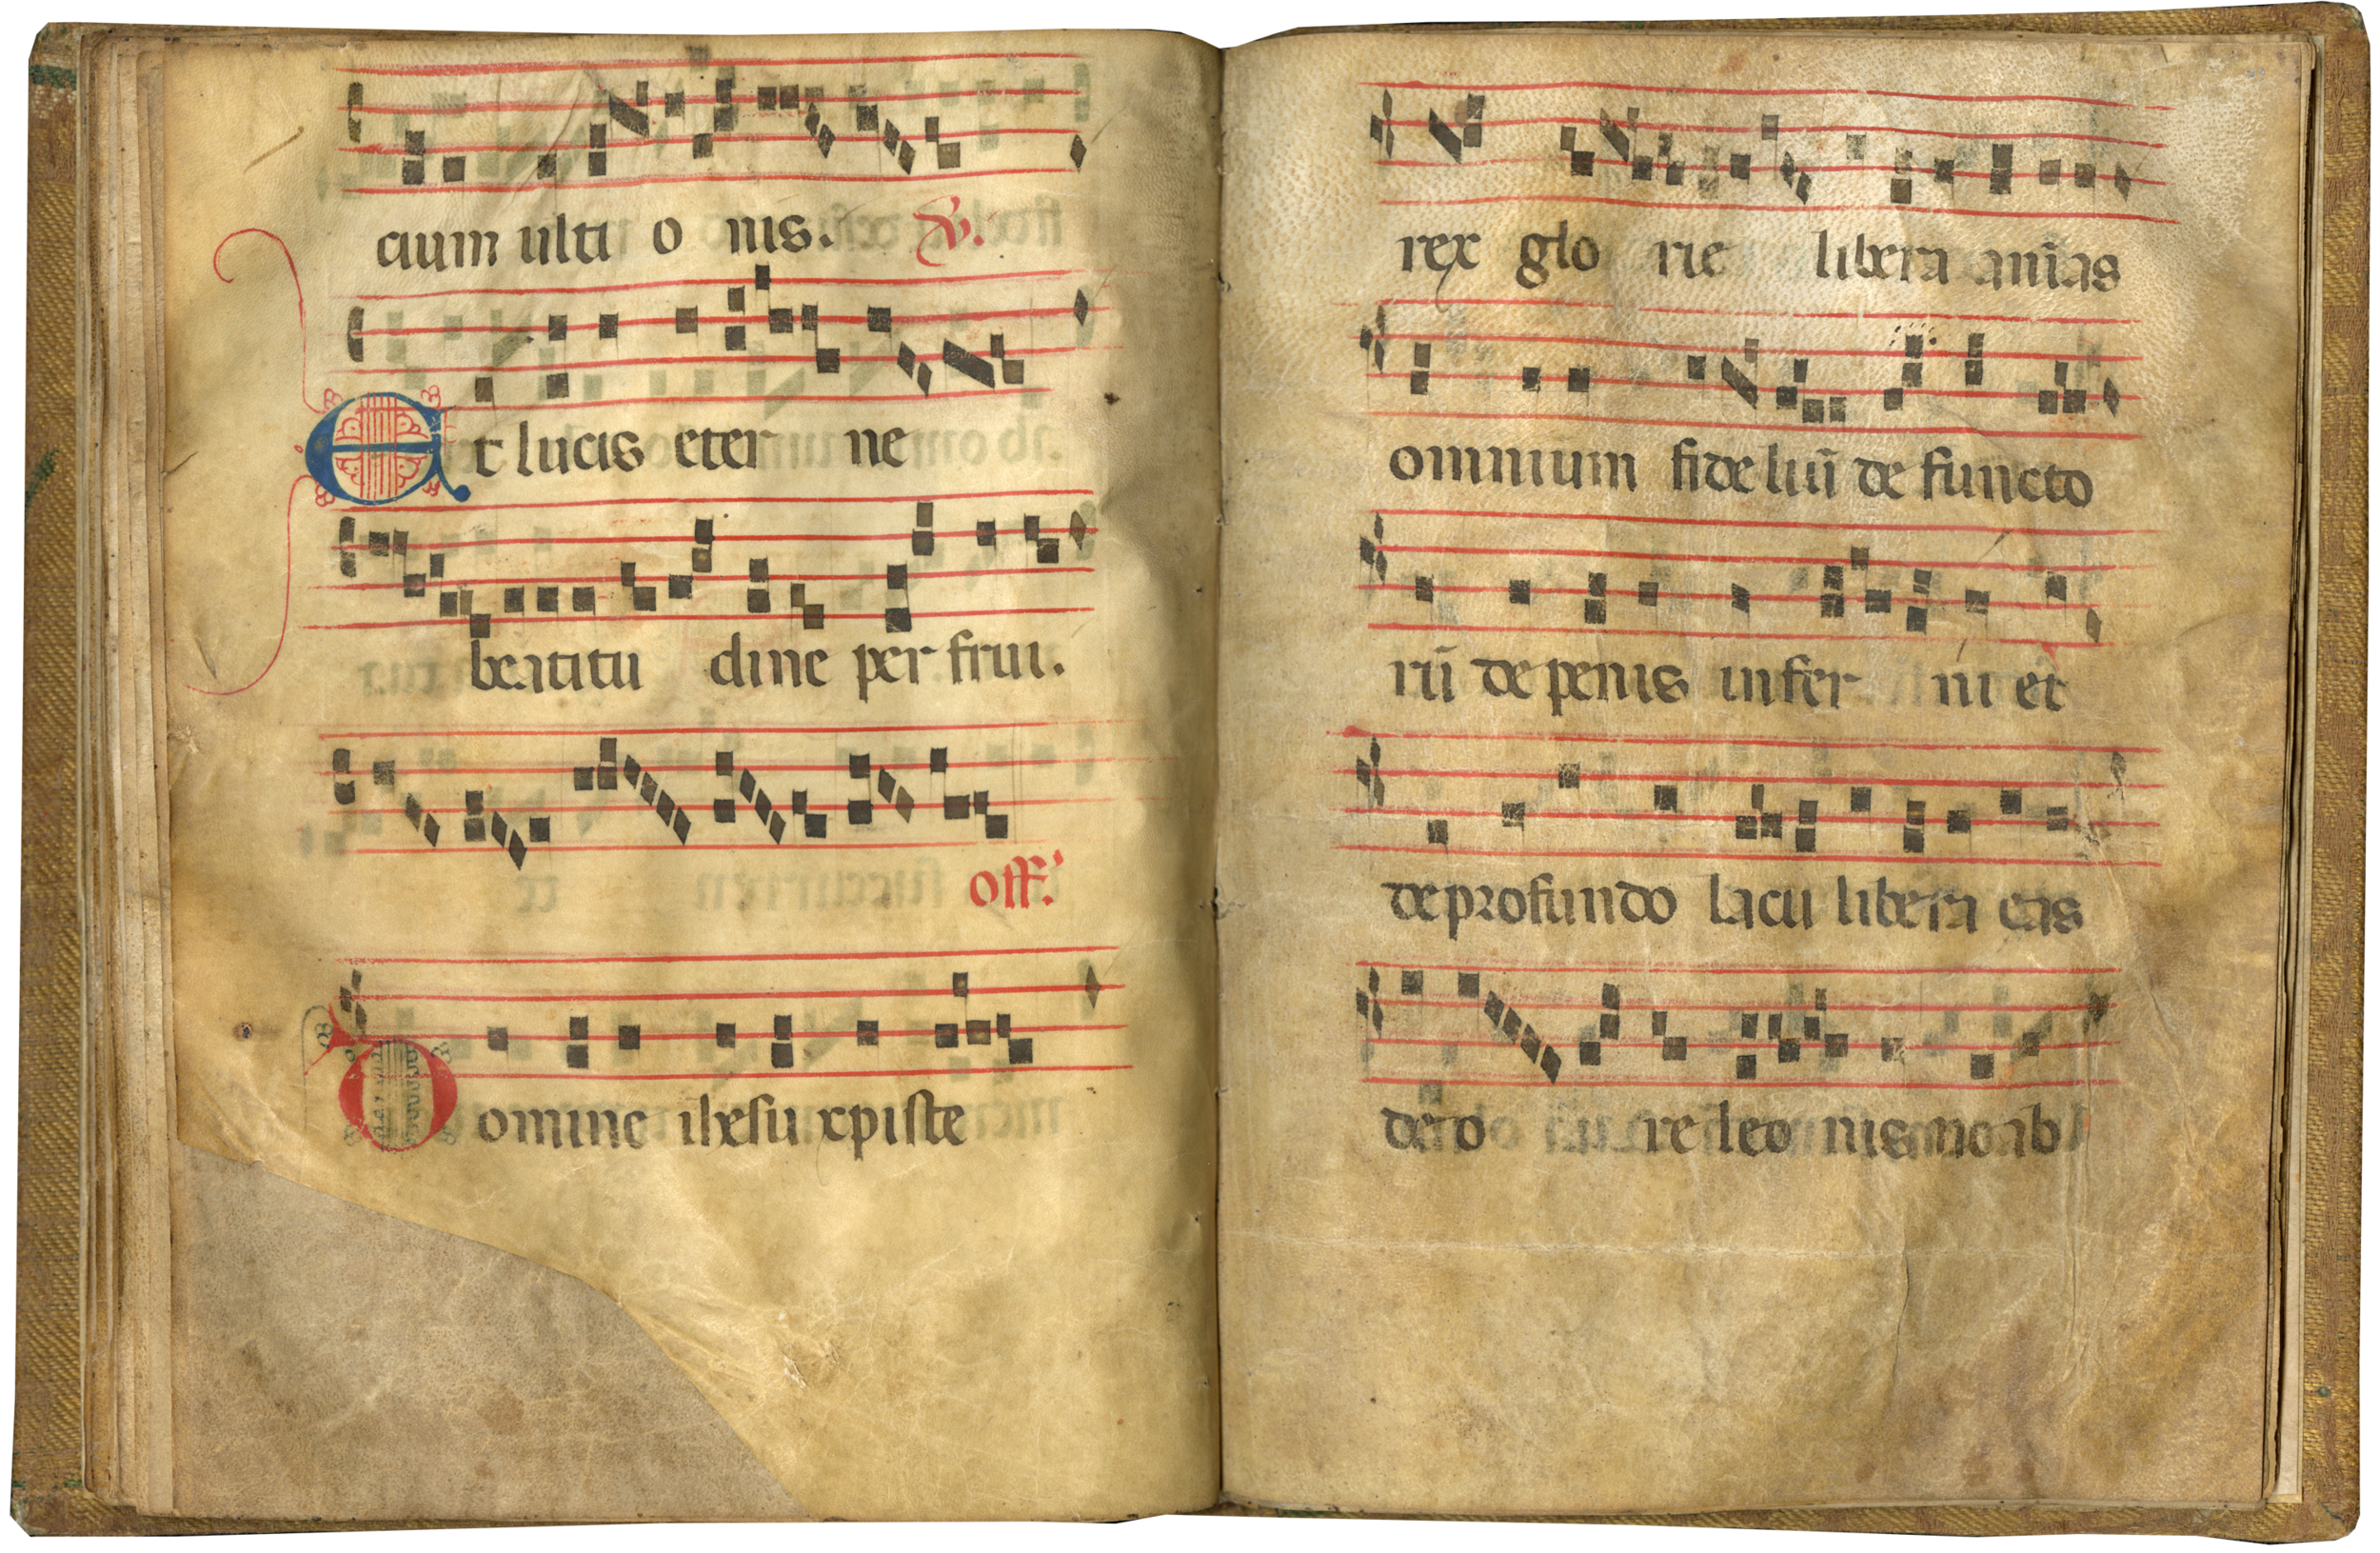 cium ulti o nis. V.
Et lucis eter ne
beatitu dine per frui.
off.
Domine ihesu xpiste
rex glo rie libera anīas
omnium fide liū de functo
rū de penis infer ni et
de profundo lacu libera eas
de o re leo nis no ab